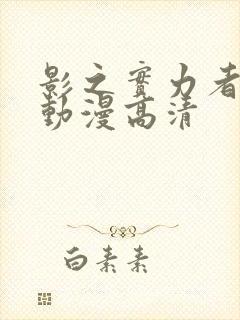 影之實力者
動漫高清
白素素